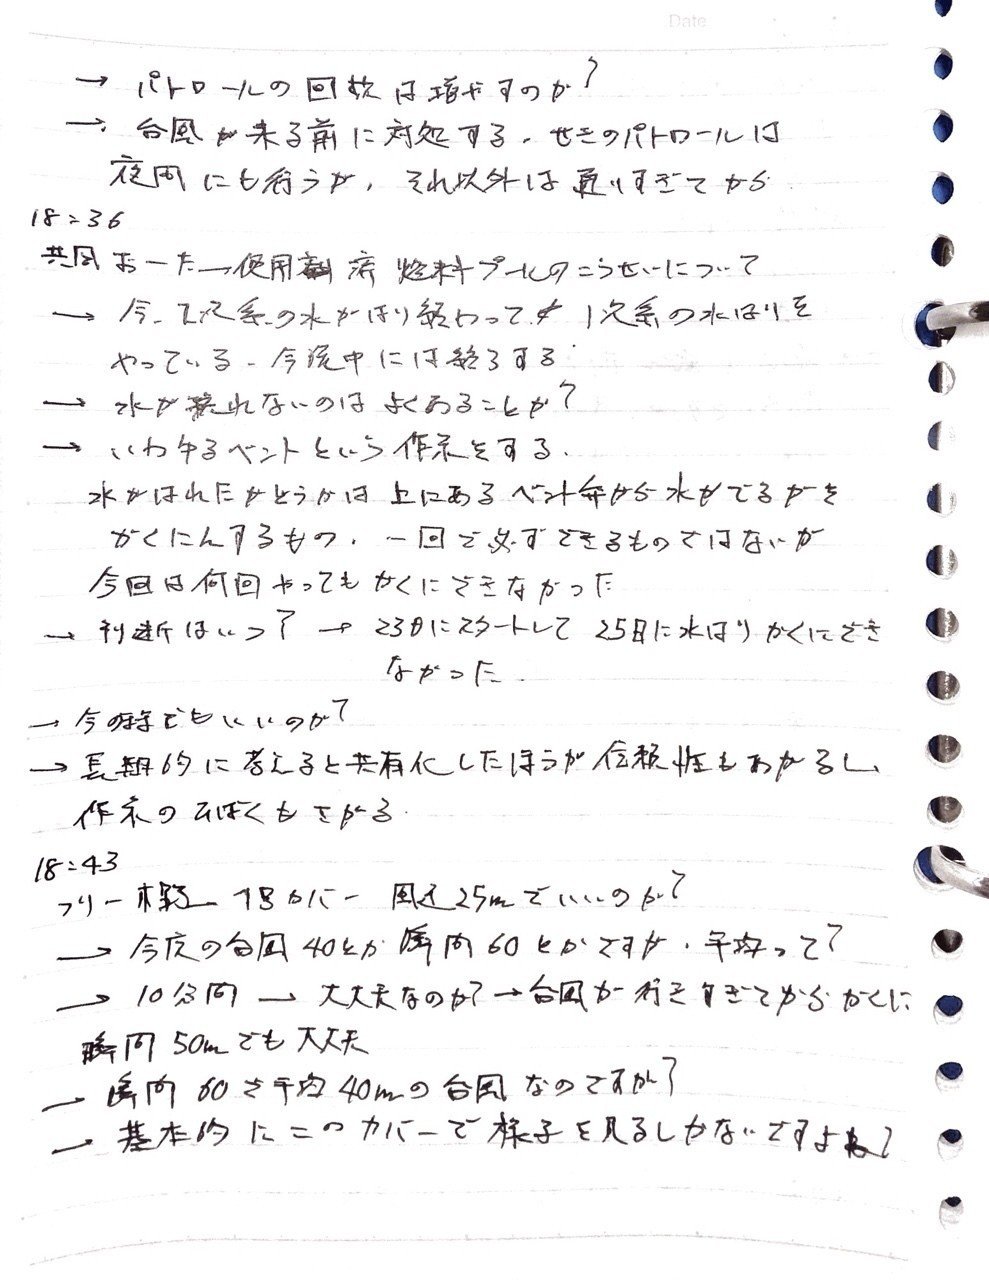 Date
→ パトロールの回数は増やすのか?
→ 台風が来る前に対処する。せきのパトロールは
夜間にも行うが、それ以外は通りすぎてから
18:36
共同 おーたー使用済燃料プールのこうせいについて
→ 今、2次系の水がはり終わって 1次系の水はりを
やっている。今週中には終了する
→ 水が張れないのはよくあることか?
→ いわゆるベントという作業をする。
水がはれたかどうかは上にあるベント弁から水がでるかを
かくにんするもの。一回で必ずできるものではないが
今回は何回やってもかくにできなかった
→ 判断はいつ? → 23日にスタートして 25日に水はりかくにでき
なかった。
→ 今の時期でもいいのか?
→ 長期的に考えると共有化したほうが信頼性もあがるし、
作業のひばくもさがる。
18:43
フリー 木野 1号カバー 風速25mでいいのか?
→ 今度の台風40とか瞬間60とかですが、平均って?
→ 10分間 → 大丈夫なのか? → 台風が行きすぎてからかくに
瞬間50mでも大丈夫
→ 瞬間60で平均40mの台風なのですか?
→ 基本的にこのカバーで様子を見るしかないですよね?